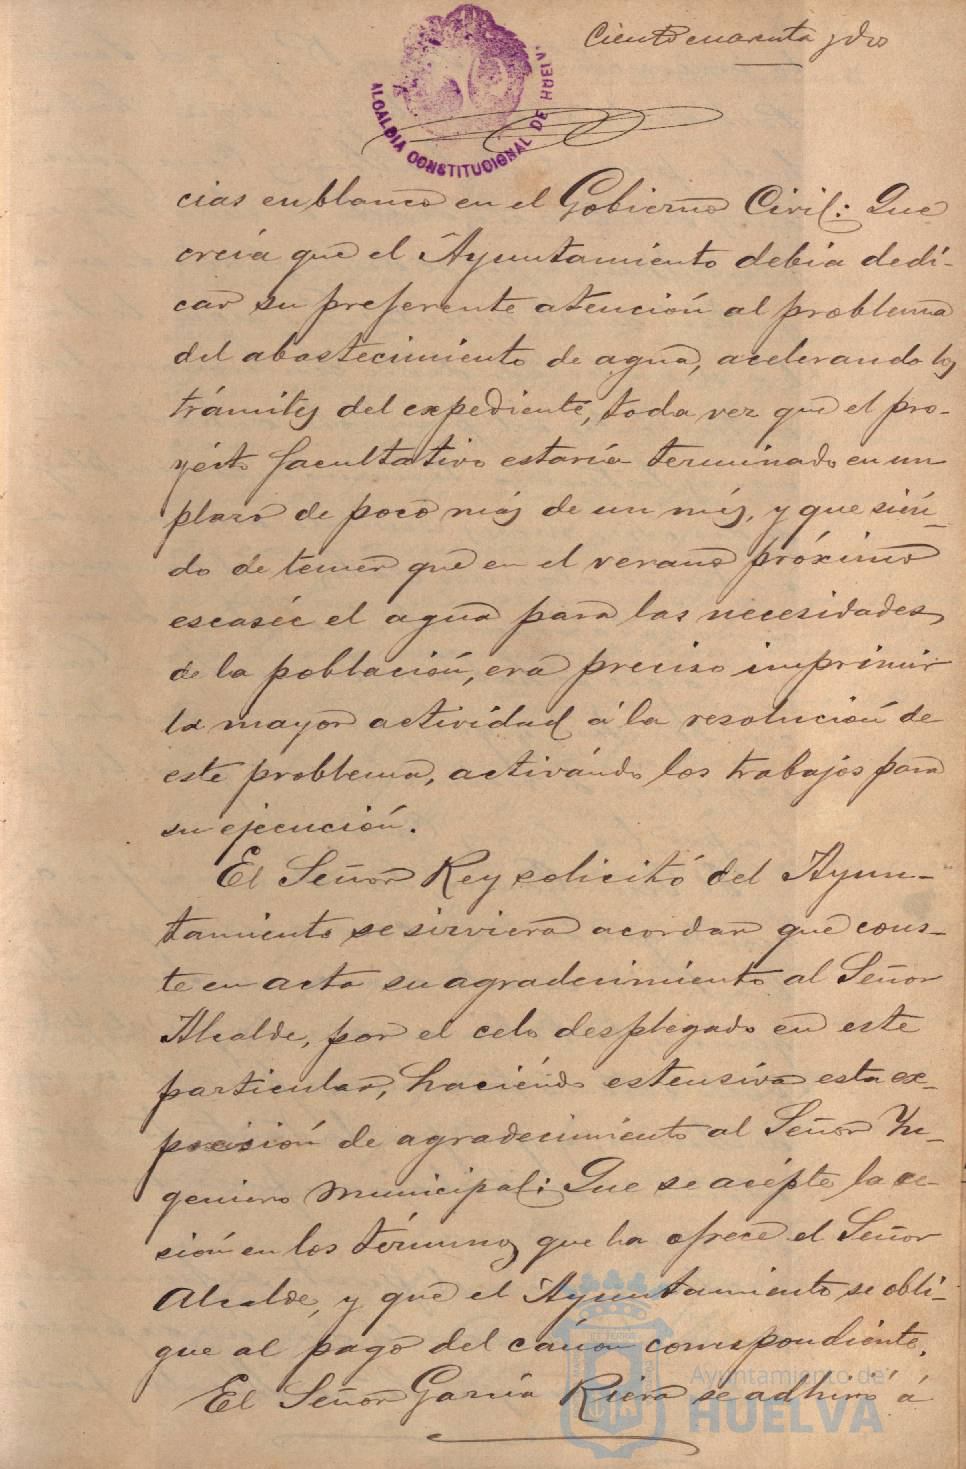 Ciento cuarenta y dos
ALCALDIA CONSTITUCIONAL DE HUELVA
cias en blanco en el Gobierno Civil: Que
creia que el Ayuntamiento debia dedi-
car su preferente atención al problema
del abastecimiento de agua, acelerando los
trámites del expediente, toda vez que el pro-
yécto facultativo estaría terminado en un
plazo de poco más de un més, y que sién-
do de temer que en el verano próximo
escasée el agua para las necesidades
de la población, era preciso imprimir
la mayor actividad á la resolución de
este problema, activándo los trabajos para
su ejecución.
El Señor Rey solicitó del Ayun-
tamiento se sirviera acordar que cons-
te en acta su agradecimiento al Señor
Alcalde, por el celo desplegado en este
particular, haciéndo estensiva esta ex-
presión de agradecimiento al Señor Yn-
geniero Municipal: Que se acépte la ce-
sión en los términos que la ofrece el Señor
Alcalde, y que el Ayuntamiento se obli-
gue al pago del cánon correspondiénte.
El Señor García Riera se adhirió á
Ayuntamiento de
HUELVA